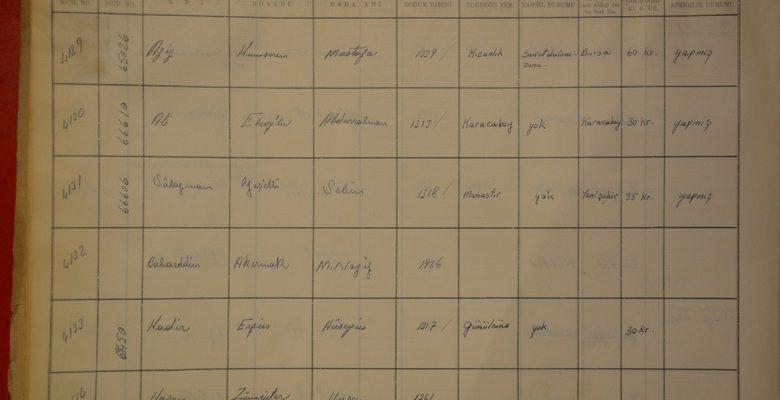 SİCİL NO. SİCİL NO. ADI SOYADI BABA ADI DOĞUM TARİHİ DOĞDUĞU YER TAHSİL DURUMU ASKERLİK DURUMU
4129 65026 Aziz Mustafa 1339 Kızanlık Bursa 60 Kr. yapmış
4130 66610 Ali Abdurrahman 1313 Karacabey yok Karacabey 30 Kr. yapmış
4131 66606 Süleyman Yeşiltı Selim 1318 Manastır yok Yenişehir 35 Kr. yapmış
4132 Bahaeddin Akırmak M. Nazif 1926
4133 Kadir Hüseyin 1317 Gümülcüne yok 30 Kr.
Hasan Zümrüter 1341